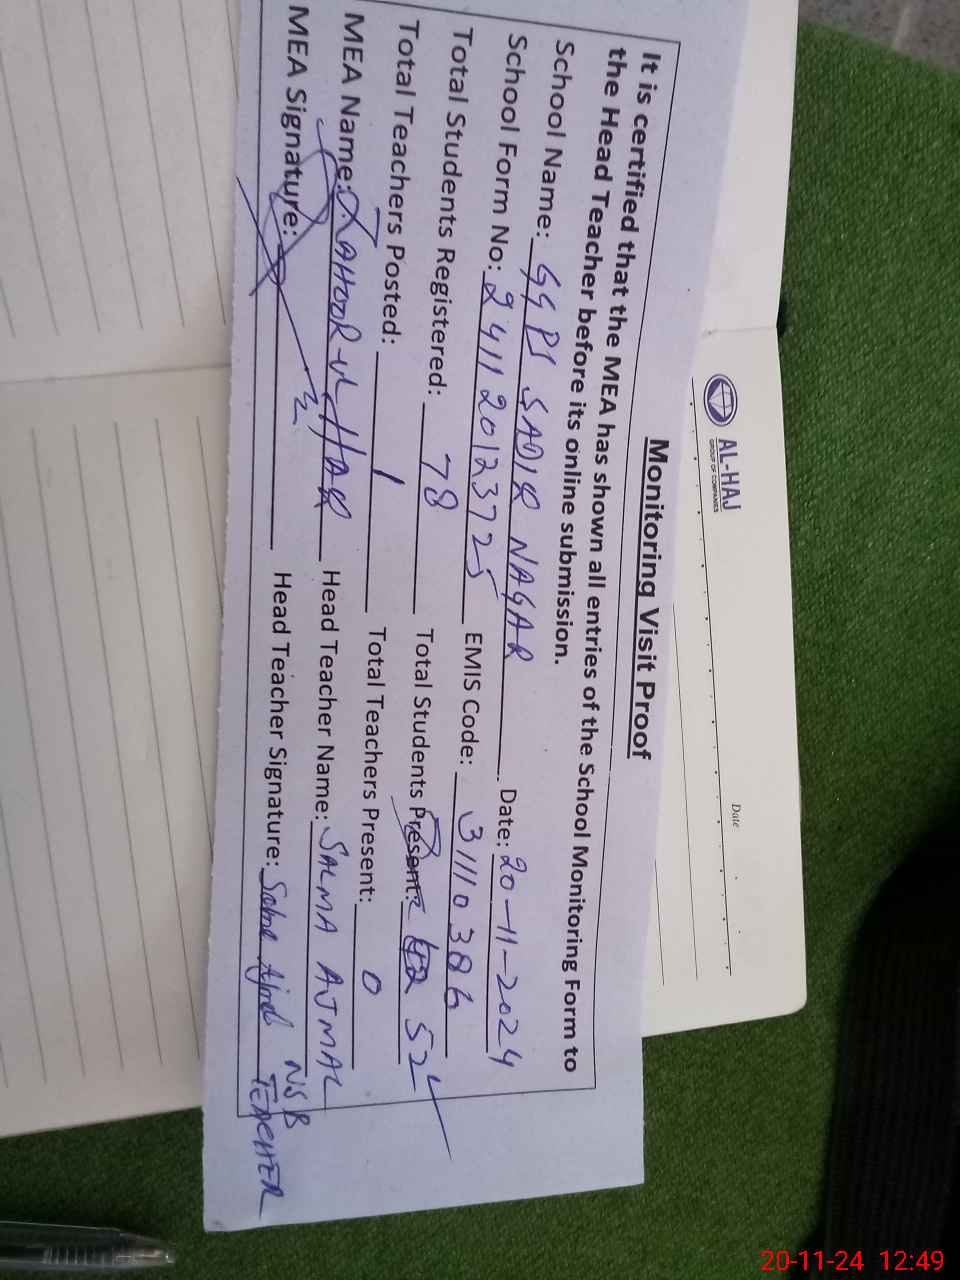 AL-HAJ
GROUP OF COMPANIES
Date
Monitoring Visit Proof
It is certified that the MEA has shown all entries of the School Monitoring Form to
the Head Teacher before its online submission.
School Name: GGPS SADIQ NAGAR Date: 20-11-2024
School Form No: 241120123725 EMIS Code: 31110386
Total Students Registered: 78 Total Students Present: 52
Total Teachers Posted: 1 Total Teachers Present: 0
MEA Name: ZAHOOR-UL-HAQ Head Teacher Name: SALMA AJMAL
MEA Signature: Head Teacher Signature: NSB TEACHER
20-11-24 12:49